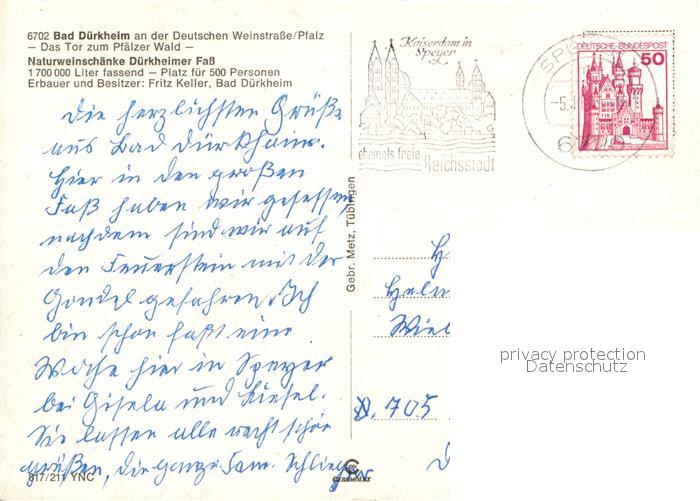 6702 Bad Dürkheim an der Deutschen Weinstraße/Pfalz
— Das Tor zum Pfälzer Wald —
Naturweinschänke Dürkheimer Faß
1 700 000 Liter fassend — Platz für 500 Personen
Erbauer und Besitzer: Fritz Keller, Bad Dürkheim
Die herzlichsten Grüße
aus Bad Dürkheim.
Hier in den großen
Faß haben wir gesessen,
nachdem sind wir auf
den Feuerstein mit der
Gondel gefahren. Ich
bin schon faßt eine
Woche hier in Speyer
bei Gisela und
Sie lassen alle recht schön
grüßen, die ganze Fam.
817/211 YNC
Gebr. Metz, Tübingen
Kaiserdom in
Speyer
ehemals freie
Reichsstadt
SP
-5.
6
DEUTSCHE BUNDESPOST
50
H
Helm
Wiel
D. 705
D
privacy protection
Datenschutz